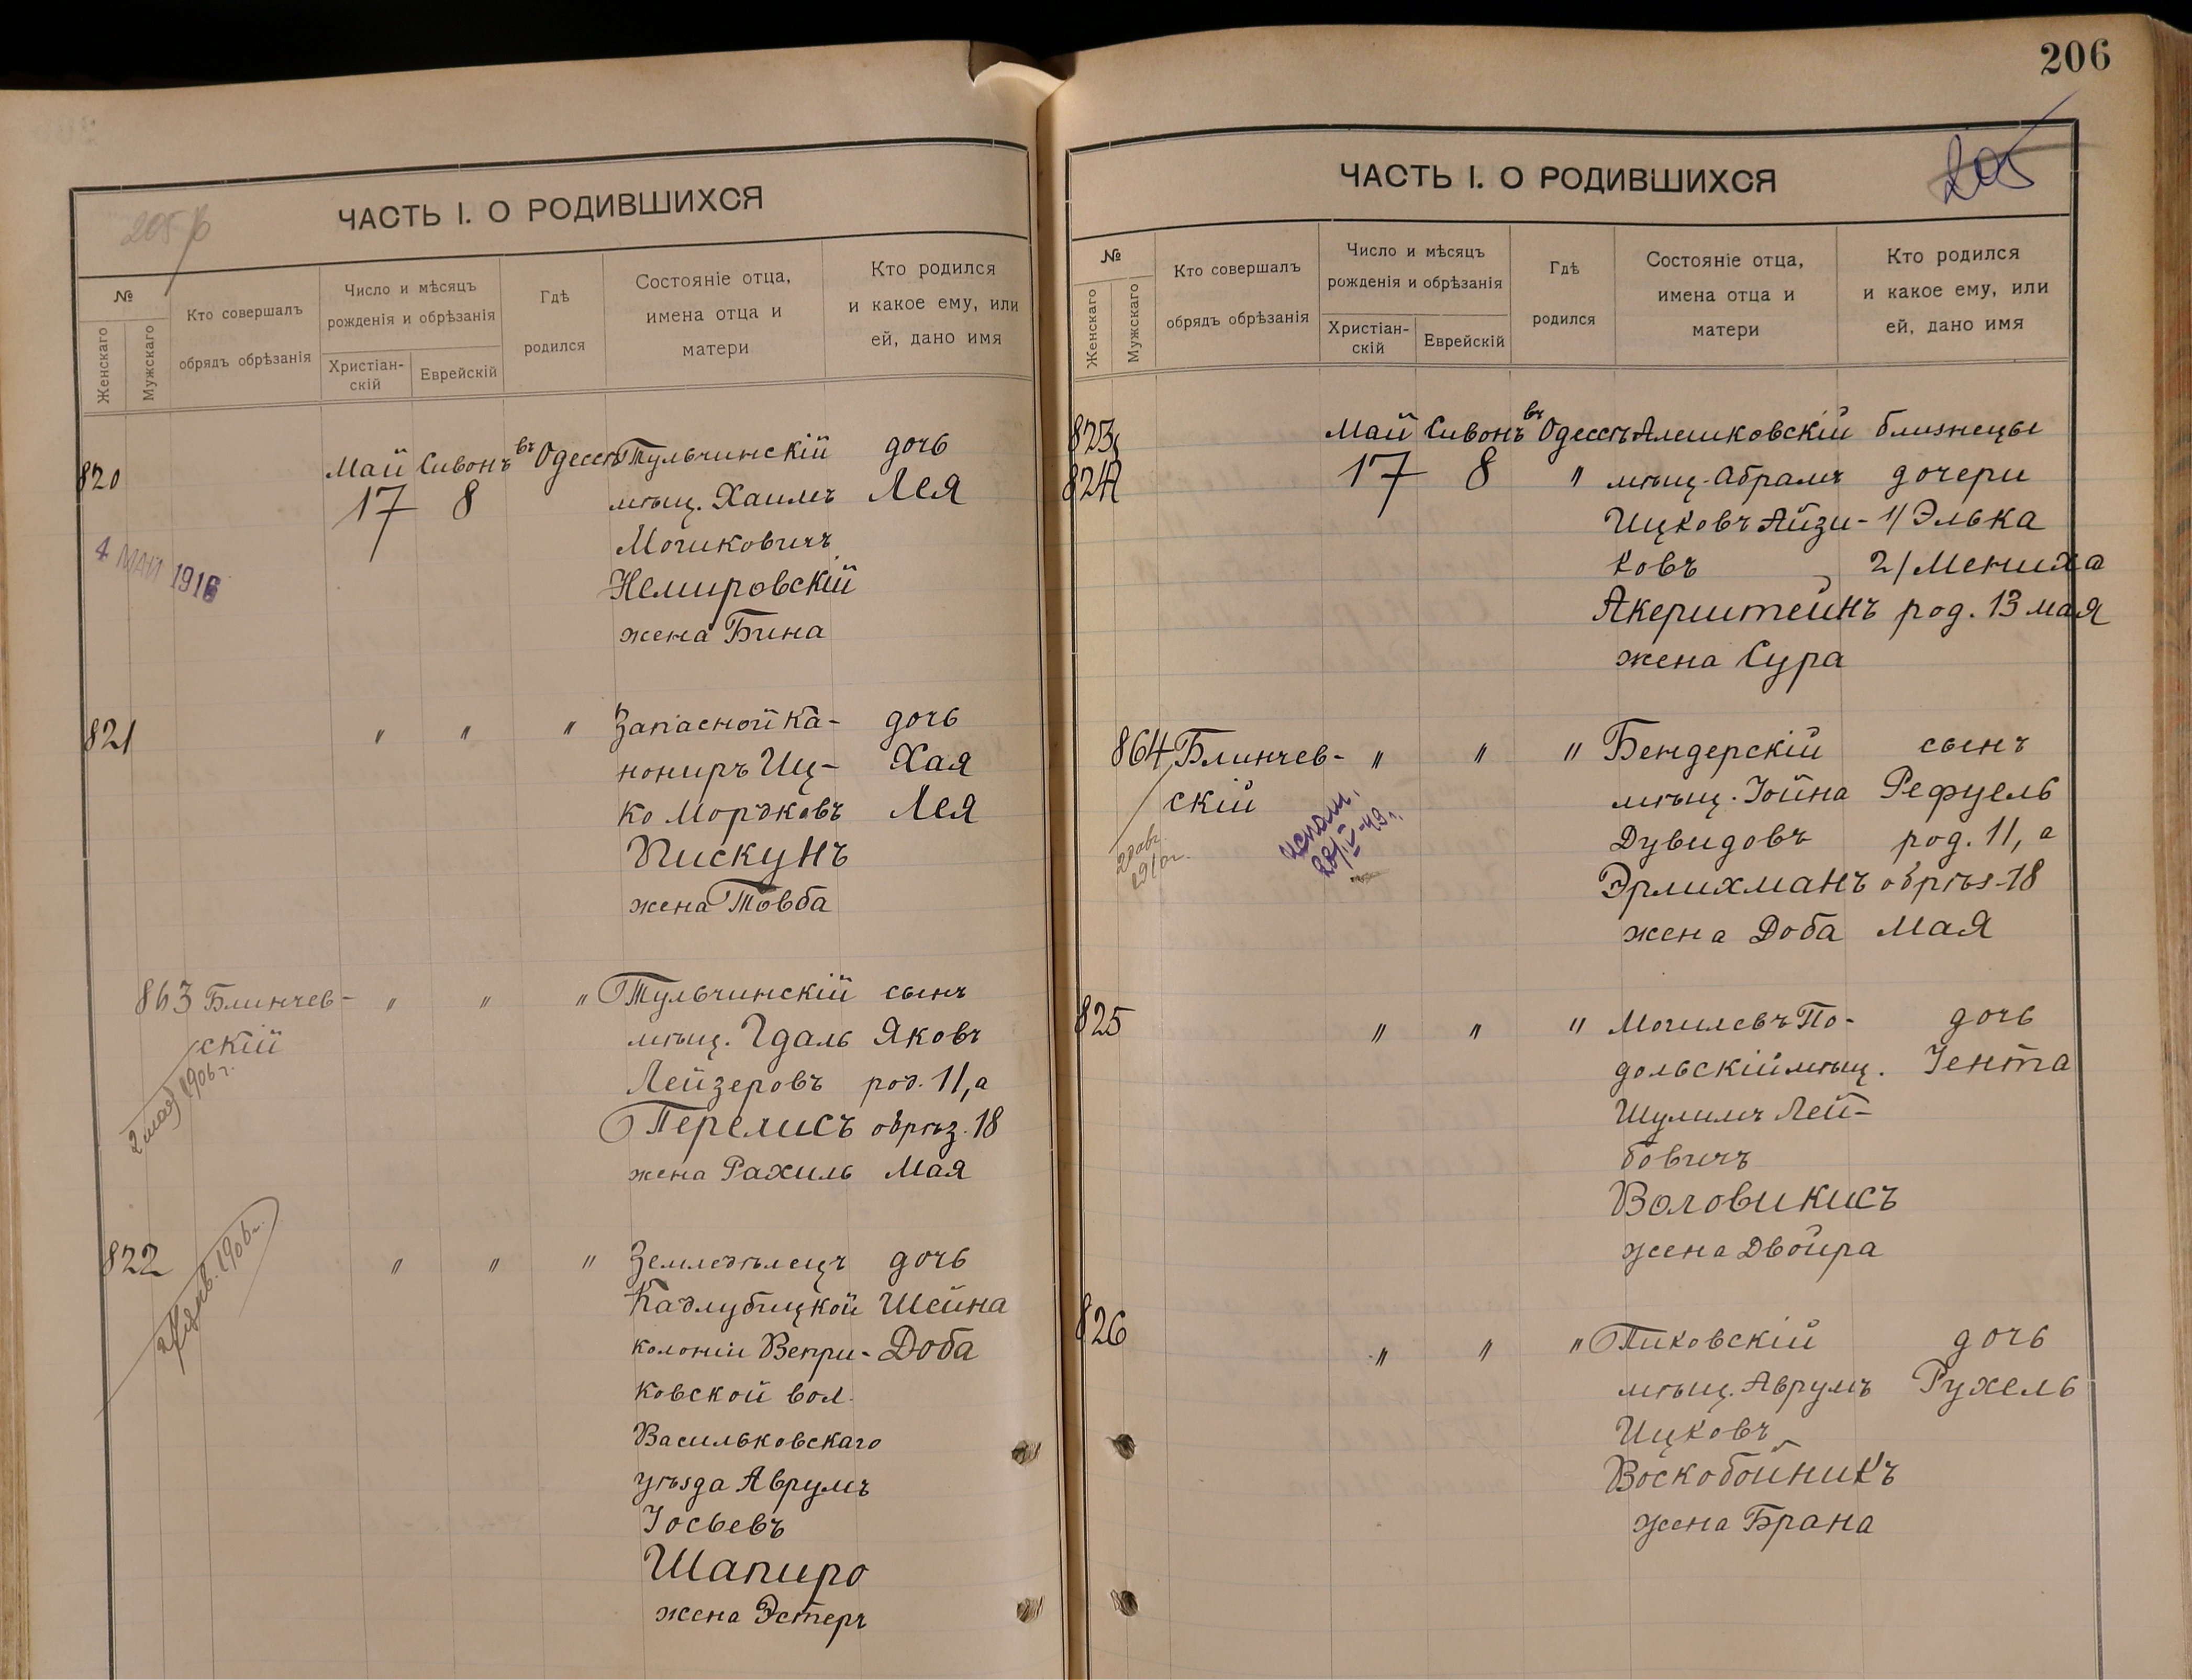 206
205
ЧАСТЬ I. О РОДИВШИХСЯ
№
Женскаго
Мужскаго
Кто совершалъ
обрядъ обрѣзанія
Число и мѣсяцъ
рожденія и обрѣзанія
Христіан-
скій
Еврейскій
Гдѣ
родился
Состояніе отца,
имена отца и
матери
Кто родился
и какое ему, или
ей, дано имя
820
Май Сивонъ въ Одессѣ Тульчинскій дочь
17 8 мѣщ. Хаимъ Лея
Мошковичъ
4 МАЙ 1916
Немировскій
жена Бина
821 " " " Запасной ка- дочь
нониръ Иц- Хая
ко Мордковъ Лея
Пискунъ
жена Товба
863 Блинчев- " " " Тульчинскій сынъ
скій мѣщ. Гдаль Яковъ
2 мая 1906 г.
Лейзеровъ род. 11, а
Перелисъ обрѣз. 18
жена Рахиль Мая
822 " " " Земледѣлецъ дочь
1906 г.
Кадлубицкой Шейна
колоніи Вепри- Доба
ковской вол.
Васильковскаго
уѣзда Аврумъ
Іосьевъ
Шапиро
жена Эстеръ
ЧАСТЬ I. О РОДИВШИХСЯ
№
Женскаго
Мужскаго
Кто совершалъ
обрядъ обрѣзанія
Число и мѣсяцъ
рожденія и обрѣзанія
Христіан-
скій
Еврейскій
Гдѣ
родился
Состояніе отца,
имена отца и
матери
Кто родился
и какое ему, или
ей, дано имя
823, Май Сивонъ въ Одессѣ Алешковскій близнецы
824 17 8 " мѣщ. Абрамъ дочери
Ицковъ Айзи- 1/ Элька
ковъ 2/ Мениха
Акерштейнъ род. 13 мая
жена Сура
864 Блинчев- " " " Бендерскій сынъ
скій мѣщ. Іойна Рефуель
Дувидовъ род. 11, а
Эрлихманъ обрѣз. 18
жена Доба Мая
825 " " " Могилевъ По- дочь
дольскій мѣщ. Іента
Шулимъ Лей-
бовичъ
Воловикисъ
жена Двойра
826 " " " Пиковскій дочь
мѣщ. Аврумъ Рухель
Ицковъ
Воскобойникъ
жена Брана